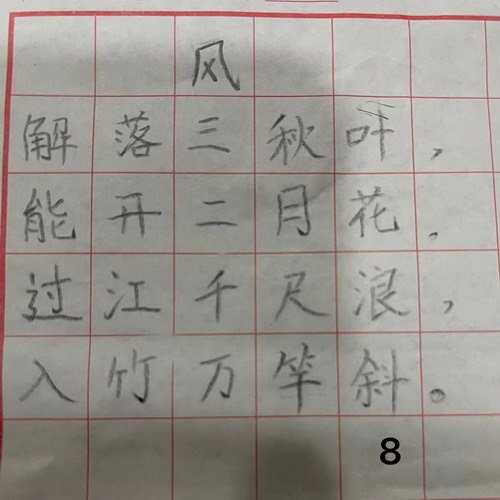 风
解落三秋叶，
能开二月花．
过江千尺浪，
入竹万竿斜。
8